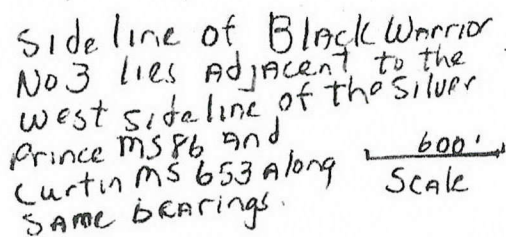 Side line of Black Warrior
No 3 lies Adjacent to the
west sideline of the Silver
Prince MS 86 and
Curtin MS 653 Along
same bearings.
600'
Scale